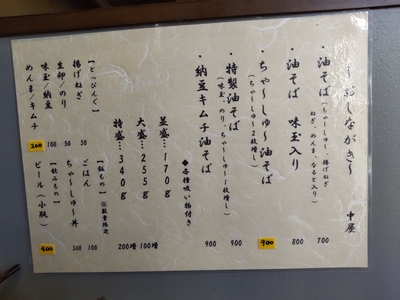 ～おしながき～ 中屋
・油そば 700
(ちゃーしゅー、揚げねぎ
ねぎ、めんま、なると入り)
・油そば 味玉入り 800
・ちゃ～しゅ～油そば 900
(ちゃーしゅー2枚増し)
・特製油そば 900
(味玉、のり、ちゃーしゅー1枚増し)
・納豆キムチ油そば 900
◆各種吸い物付き
並盛…170g
大盛…255g 100増
特盛…340g 200増
【とっぴんぐ】
揚げねぎ 50
生卵/のり 50
味玉/納豆 100
めんま/キムチ 200
【飯もの】※数量限定
ごはん 100
ちゃ～しゅ～丼 300
【飲みもの】
ビール(小瓶) 400